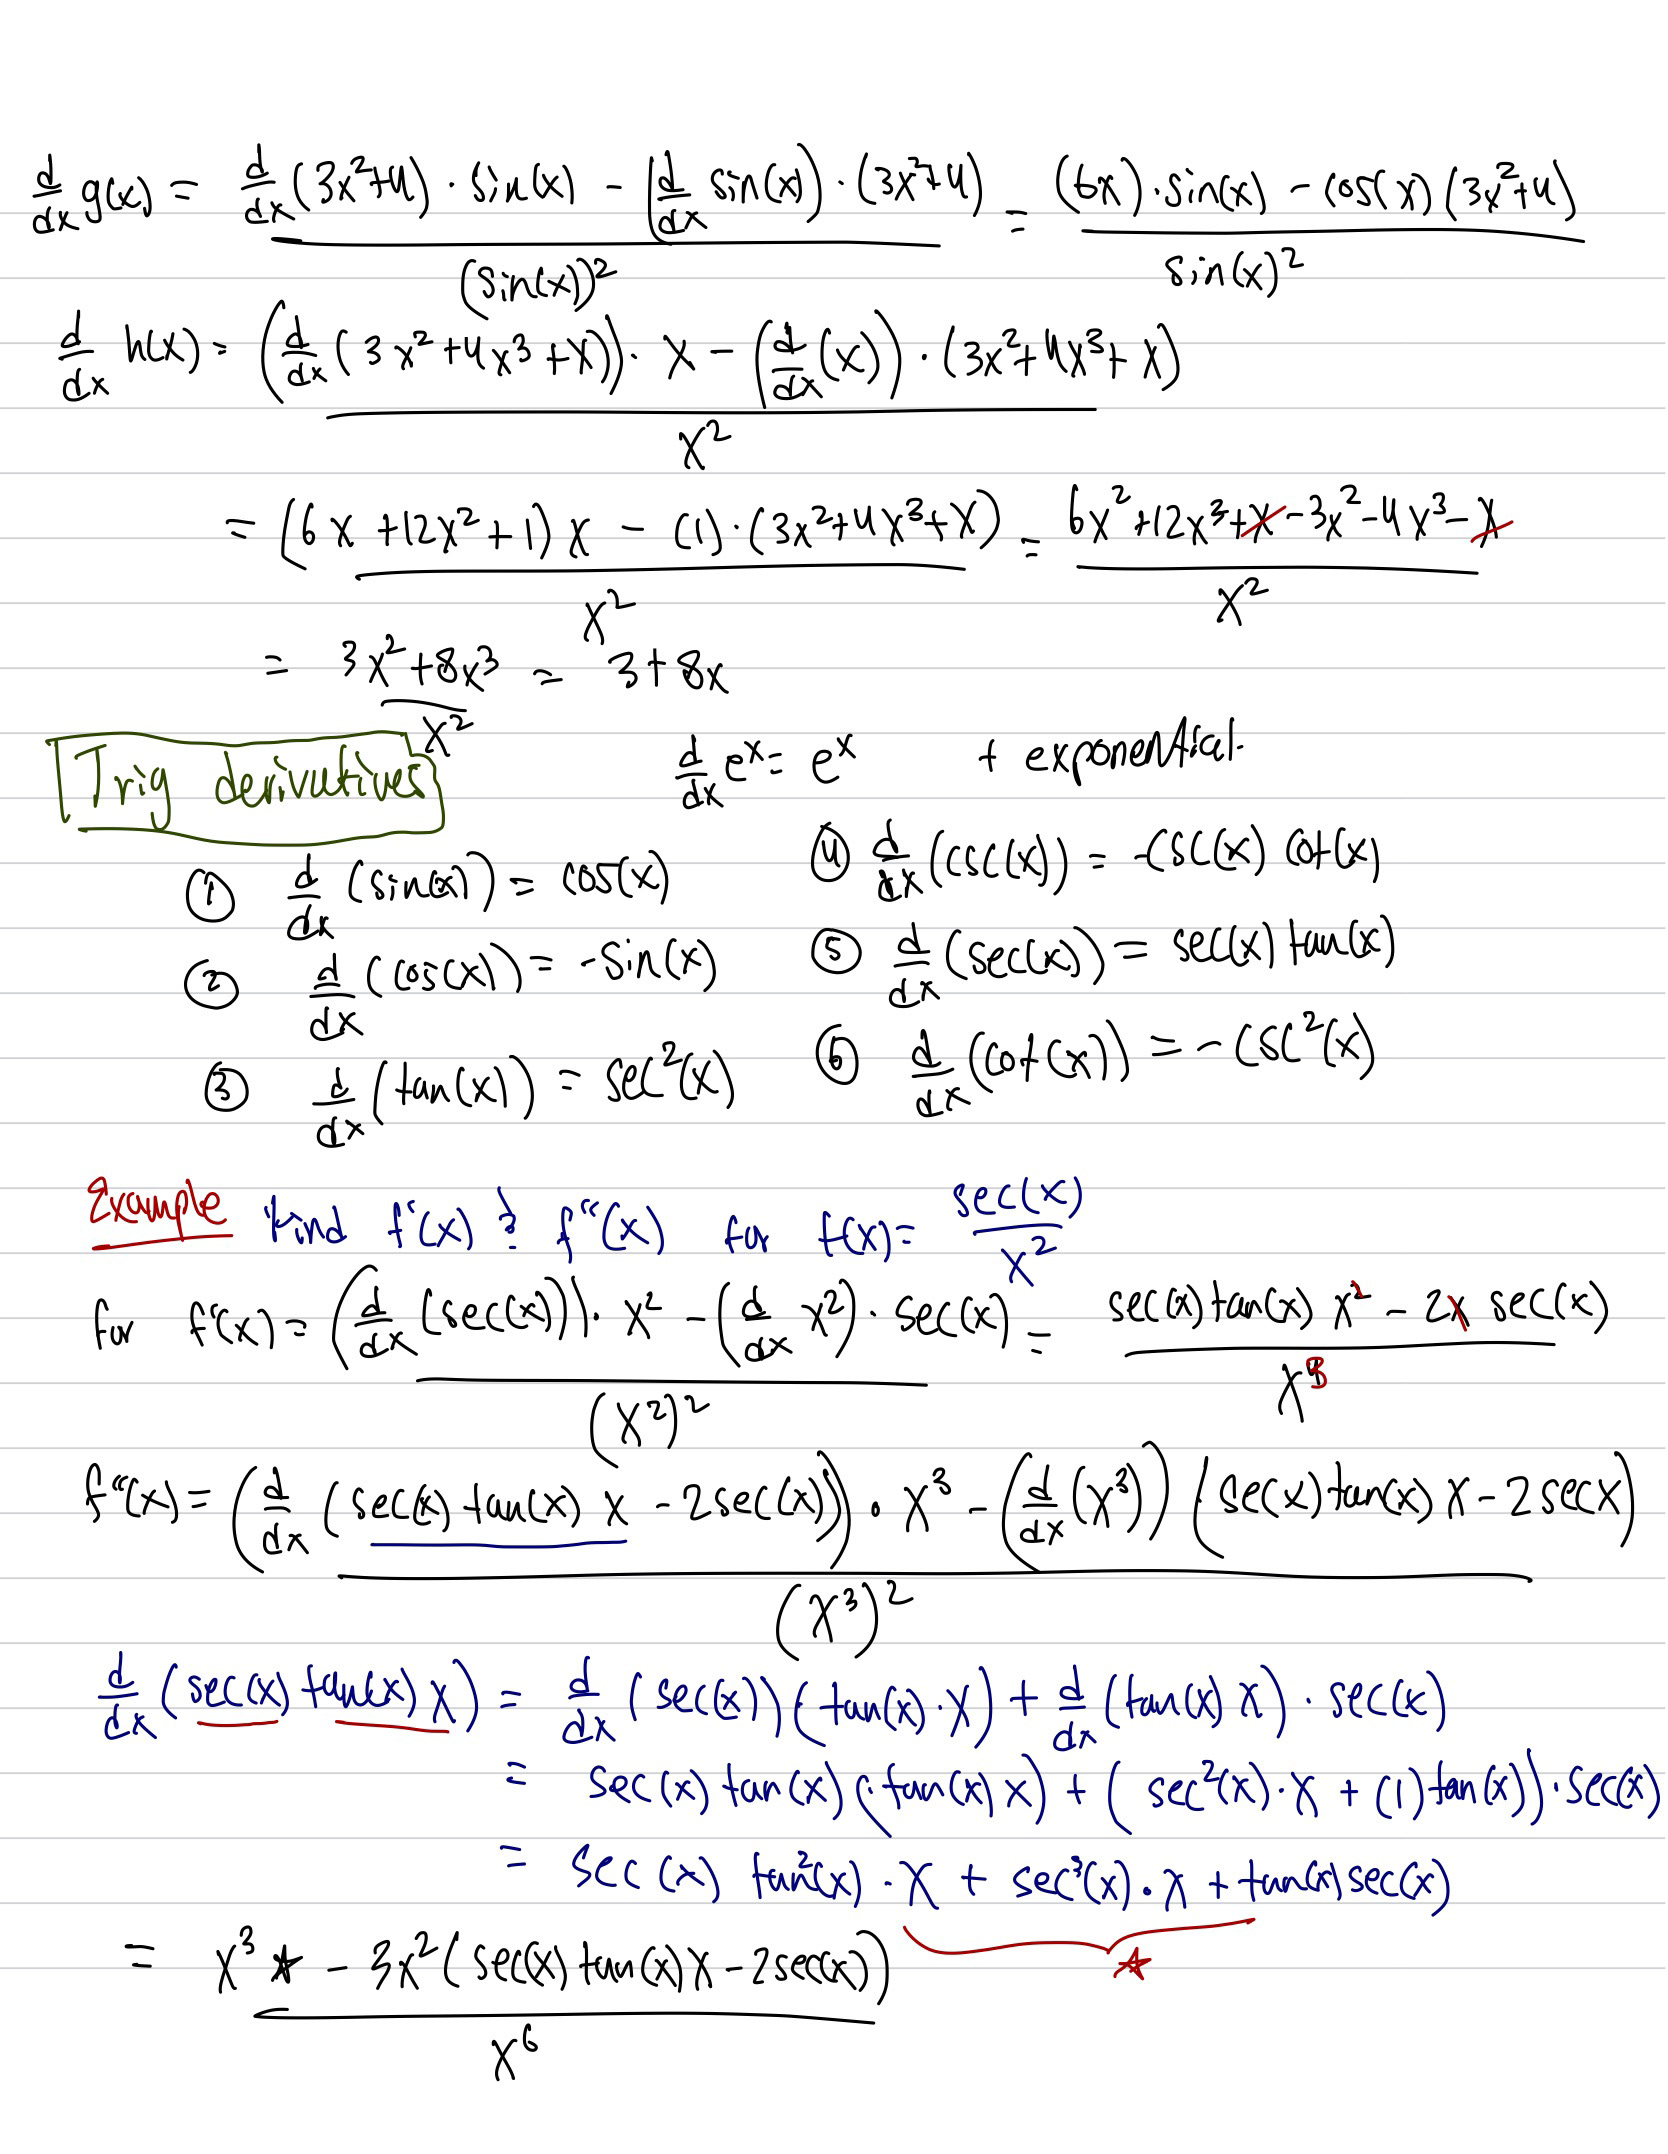 d/dx g(x) = (d/dx (3x²+4) · sin(x) - (d/dx sin(x)) · (3x²+4)) / (sin(x))² = ((6x) · sin(x) - cos(x) (3x²+4)) / sin(x)²
d/dx h(x) = ((d/dx (3x²+4x³+x)) · x - (d/dx (x)) · (3x²+4x³+x)) / x²
= ((6x+12x²+1) x - (1) · (3x²+4x³+x)) / x² = (6x²+12x³+x-3x²-4x³-x) / x²
= (3x²+8x³) / x² = 3+8x
Trig derivatives d/dx eˣ = eˣ + exponential.
① d/dx (sin(x)) = cos(x) ④ d/dx (csc(x)) = -csc(x) cot(x)
② d/dx (cos(x)) = -sin(x) ⑤ d/dx (sec(x)) = sec(x) tan(x)
③ d/dx (tan(x)) = sec²(x) ⑥ d/dx (cot(x)) = -csc²(x)
Example Find f'(x) & f''(x) for f(x) = sec(x) / x²
for f'(x) = ((d/dx (sec(x))) · x² - (d/dx x²) · sec(x)) / (x²)² = (sec(x) tan(x) x² - 2x sec(x)) / x³
f''(x) = ((d/dx (sec(x) tan(x) x - 2sec(x))) · x³ - (d/dx (x³)) (sec(x) tan(x) x - 2secx)) / (x³)²
d/dx (sec(x) tan(x) x) = d/dx (sec(x)) (tan(x) · x) + d/dx (tan(x) x) · sec(x)
= sec(x) tan(x) (· tan(x) x) + (sec²(x) · x + (1) tan(x)) · sec(x)
= sec(x) tan²(x) · x + sec³(x) · x + tan(x) sec(x)
★
= (x³ ★ - 3x² (sec(x) tan(x) x - 2sec(x))) / x⁶